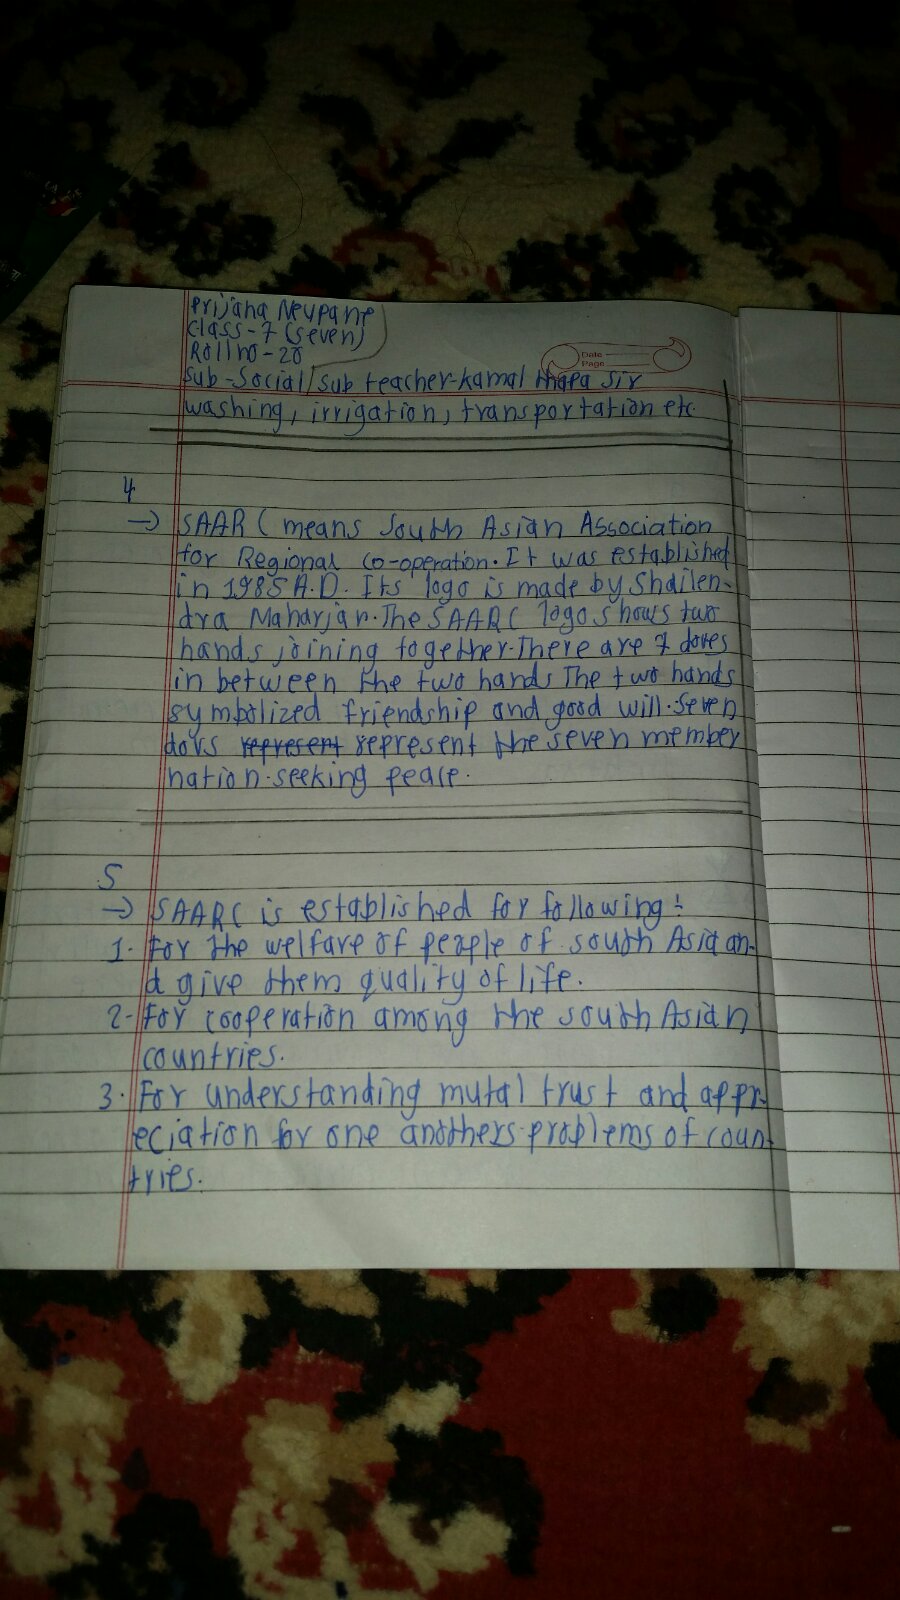 Prijana Neupane
class-7 (seven)
Roll no-20
Date
Page
Sub-Social/sub teacher-kamal thapa sir
washing, irrigation, transportation etc.
4
→ SAARC means South Asian Association
for Regional co-operation. It was established
in 1985 A.D. Its logo is made by Shailen-
dra Maharjan. The SAARC logo shows two
hands joining together. There are 7 doves
in between the two hands The two hands
symbolized friendship and good will. Seven
dovs represent represent the seven member
nation. seeking peace.
5
→ SAARC is established for following:
1. For the welfare of people of south Asia an-
d give them quality of life.
2- For cooperation among the south Asian
countries.
3. For understanding mutal trust and appr-
eciation for one anothers problems of coun-
tries.